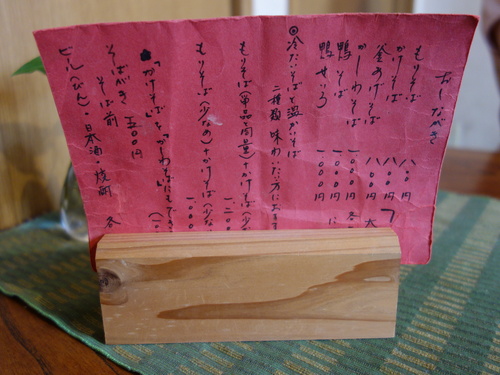 おしながき
もりそば 八〇〇円
かけそば 八〇〇円
釜あげそば 八〇〇円 大
かしわそば 一〇〇〇円 各
鴨そば 一〇〇〇円
鴨せいろ 一〇〇〇円
◎冷たいそばと温かいそば
二種類味わいたい方におす
もりそば(単品と同量)+かけそば(少な
一、二〇
もりそば(少なめ)+かけそば(少な
一、〇〇〇
「かけそば」を「かしわそば」にもでき
そばがき 五〇〇円
そば前
ビール(びん)・日本酒・焼酎 各